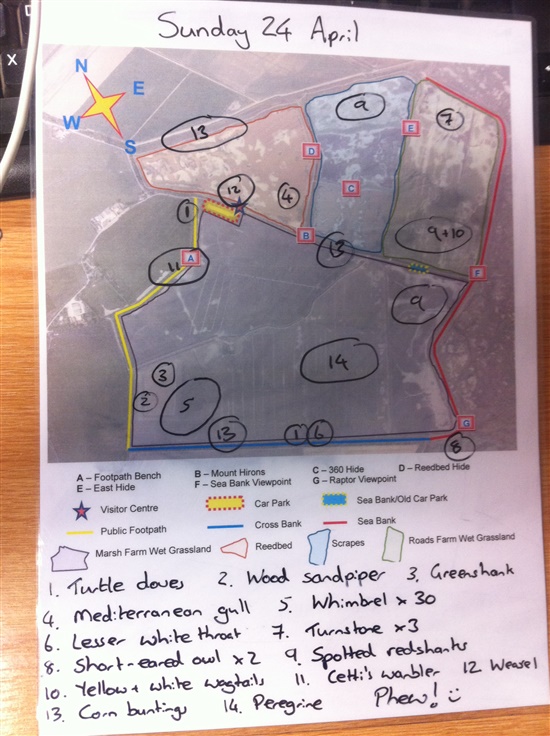 Sunday 24 April
N
E
W
S
13
9
7
E
D
12
4
C
1
B
13
9+10
A
11
F
9
14
3
2
5
13
1
6
G
8
A – Footpath Bench
B – Mount Hirons
C – 360 Hide
D – Reedbed Hide
E – East Hide
F – Sea Bank Viewpoint
G – Raptor Viewpoint
Visitor Centre
Car Park
Sea Bank/Old Car Park
Public Footpath
Cross Bank
Sea Bank
Marsh Farm Wet Grassland
Reedbed
Scrapes
Roads Farm Wet Grassland
1. Turtle doves 2. Wood sandpiper 3. Greenshank
4. Mediterranean gull 5. Whimbrel x 30
6. Lesser whitethroat 7. Turnstone x3
8. Short-eared owl x2 9. Spotted redshanks
10. Yellow + white wagtails 11. Cetti's warbler 12 Weasel
13. Corn buntings 14. Peregrine Phew!